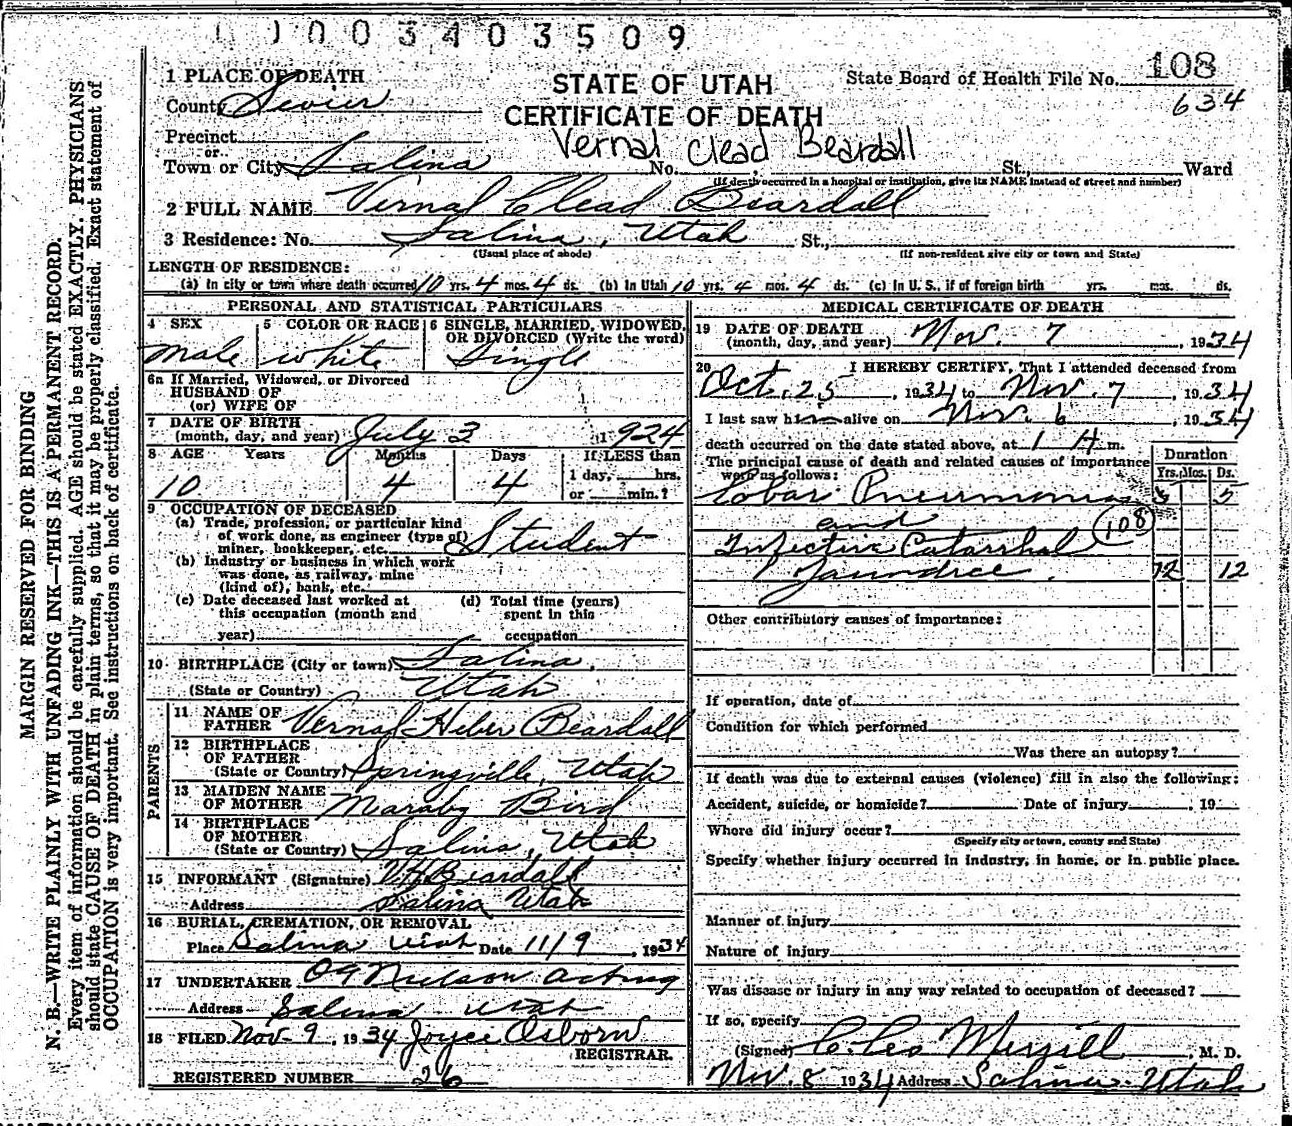 0003403509
1 PLACE OF DEATH
STATE OF UTAH
State Board of Health File No. 108
County Sevier
CERTIFICATE OF DEATH
634
Precinct
Vernal Clead Beardall
or
Town or City Salina No. St., Ward
(If death occurred in a hospital or institution, give its NAME instead of street and number)
2 FULL NAME Vernal Clead Beardall
3 Residence: No. Salina, Utah St.,
(Usual place of abode) (If non-resident give city or town and State)
LENGTH OF RESIDENCE:
(a) In city or town where death occurred 10 yrs. 4 mos. 4 ds. (b) In Utah 10 yrs. 4 mos. 4 ds. (c) In U. S., if of foreign birth yrs. mos. ds.
PERSONAL AND STATISTICAL PARTICULARS
4 SEX 5 COLOR OR RACE 6 SINGLE, MARRIED, WIDOWED,
OR DIVORCED (Write the word)
male white Single
6a If Married, Widowed, or Divorced
HUSBAND OF
(or) WIFE OF
7 DATE OF BIRTH
(month, day, and year) July 3 1924
8 AGE Years Months Days If LESS than
1 day, hrs.
10 4 4 or min.?
9 OCCUPATION OF DECEASED
(a) Trade, profession, or particular kind
of work done, as engineer (type of)
miner, bookkeeper, etc. Student
(b) Industry or business in which work
was done, as railway, mine
(kind of), bank, etc.
(c) Date deceased last worked at (d) Total time (years)
this occupation (month and spent in this
year) occupation
10 BIRTHPLACE (City or town) Salina,
(State or Country) Utah
PARENTS
11 NAME OF
FATHER Vernal Heber Beardall
12 BIRTHPLACE
OF FATHER
(State or Country) Springville, Utah
13 MAIDEN NAME
OF MOTHER Maraby Bird
14 BIRTHPLACE
OF MOTHER
(State or Country) Salina, Utah
15 INFORMANT (Signature) V H Beardall
Address Salina Utah
16 BURIAL, CREMATION, OR REMOVAL
Place Salina Utah Date 11/9, 1934
17 UNDERTAKER Nielson acting
Address Salina Utah
18 FILED Nov-9, 1934 Joyce Osborn
REGISTRAR.
REGISTERED NUMBER 26
MEDICAL CERTIFICATE OF DEATH
19 DATE OF DEATH
(month, day, and year) Nov. 7, 1934
20 I HEREBY CERTIFY, That I attended deceased from
Oct. 25, 1934 to Nov. 7, 1934
I last saw him alive on Nov. 6, 1934
death occurred on the date stated above, at 1 A m.
The principal cause of death and related causes of importance
were as follows:
Duration
Yrs. Mos. Ds.
Lobar Pneumonia 5
and 108
Infective Catarrhal
Jaundice. 12 12
Other contributory causes of importance:
If operation, date of
Condition for which performed
Was there an autopsy?
If death was due to external causes (violence) fill in also the following:
Accident, suicide, or homicide? Date of injury, 19
Where did injury occur?
(Specify city or town, county and State)
Specify whether injury occurred in industry, in home, or in public place.
Manner of injury
Nature of injury
Was disease or injury in any way related to occupation of deceased?
If so, specify
(Signed) C. Leo Merrill, M. D.
Nov. 8 1934 Address Salina Utah
MARGIN RESERVED FOR BINDING
N. B.—WRITE PLAINLY WITH UNFADING INK—THIS IS A PERMANENT RECORD.
Every item of information should be carefully supplied. AGE should be stated EXACTLY. PHYSICIANS
should state CAUSE OF DEATH in plain terms, so that it may be properly classified. Exact statement of
OCCUPATION is very important. See instructions on back of certificate.